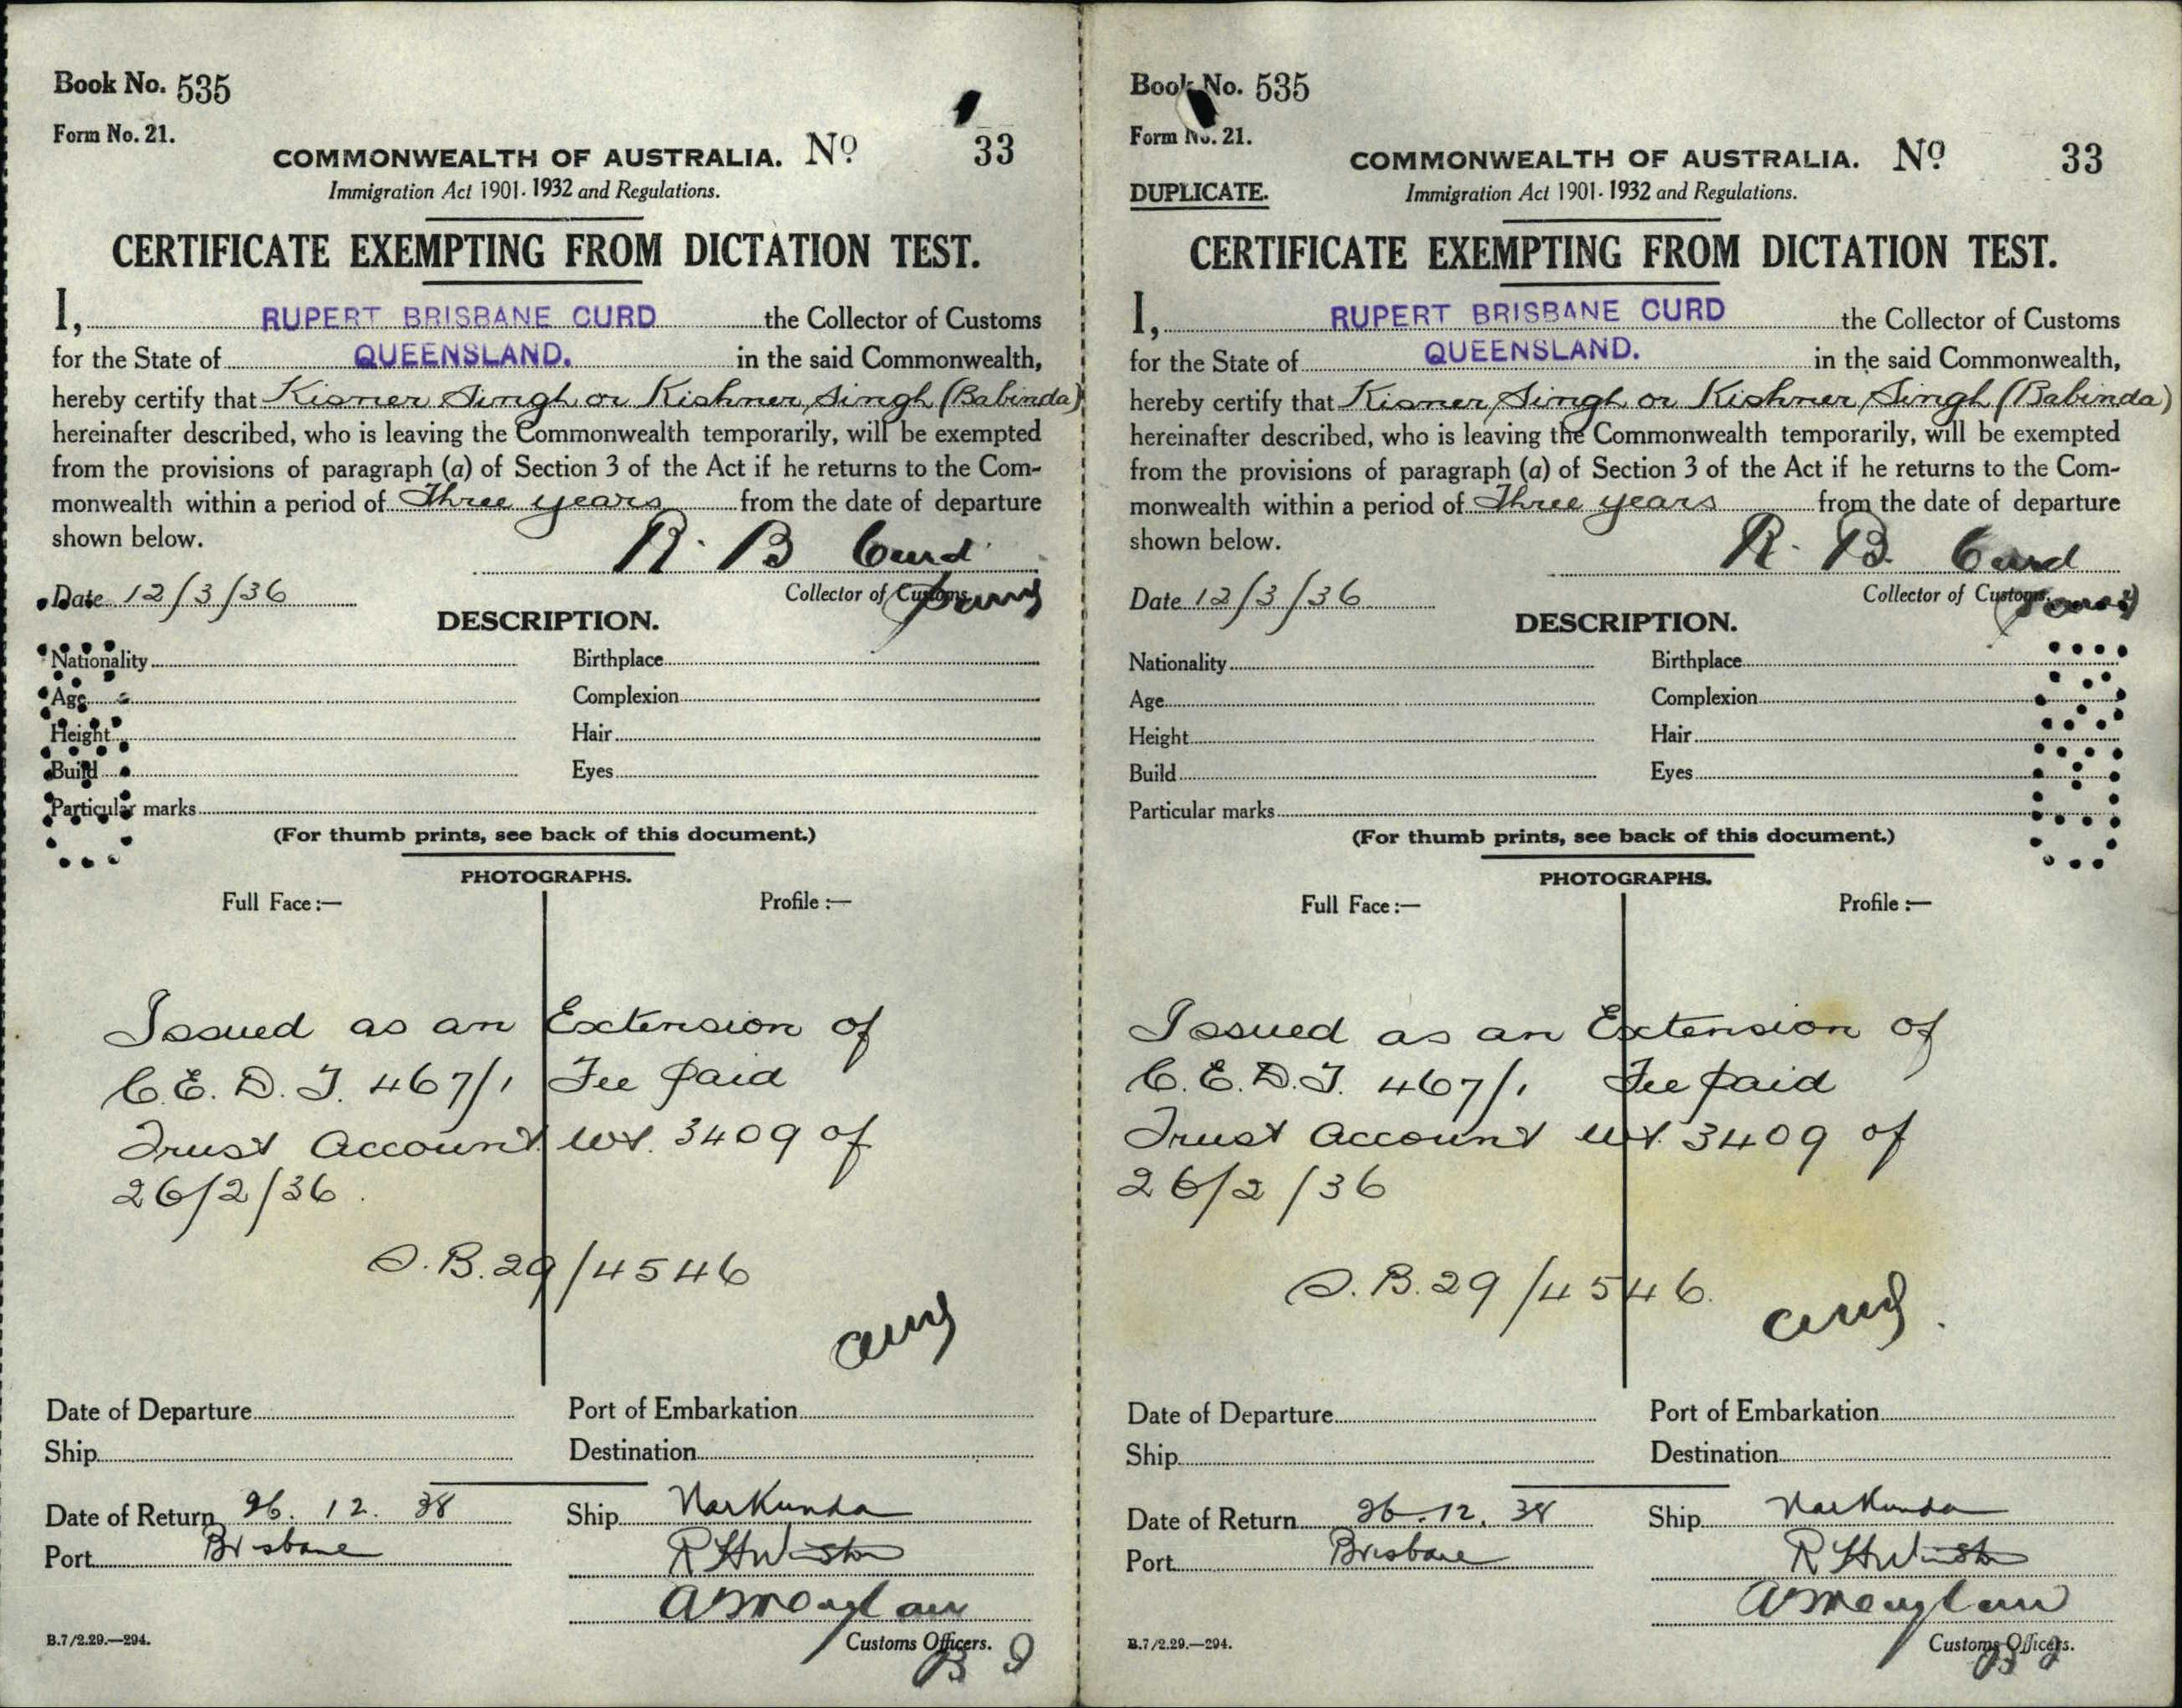 Book No. 535
Form No. 21.
COMMONWEALTH OF AUSTRALIA. No 33
Immigration Act 1901-1932 and Regulations.
CERTIFICATE EXEMPTING FROM DICTATION TEST.
I, RUPERT BRISBANE CURD the Collector of Customs
for the State of QUEENSLAND. in the said Commonwealth,
hereby certify that Kisner Singh or Kishner Singh (Babinda)
hereinafter described, who is leaving the Commonwealth temporarily, will be exempted
from the provisions of paragraph (a) of Section 3 of the Act if he returns to the Com-
monwealth within a period of Three years from the date of departure
shown below.
R. B Curd
Date 12/3/36
Collector of Customs
DESCRIPTION.
Nationality Birthplace
Age Complexion
Height Hair
Build Eyes
Particular marks
(For thumb prints, see back of this document.)
PHOTOGRAPHS.
Full Face:— Profile:—
Issued as an Extension of
C.E.D.T. 467/1 Fee paid
Trust Account wt. 3409 of
26/2/36.
S.B.29/4546
Date of Departure Port of Embarkation
Ship Destination
Date of Return 26. 12. 38 Ship Narkunda
Port Brisbane
Customs Officers.
B.7/2.29.—294.
Book No. 535
Form No. 21.
COMMONWEALTH OF AUSTRALIA. No 33
DUPLICATE. Immigration Act 1901-1932 and Regulations.
CERTIFICATE EXEMPTING FROM DICTATION TEST.
I, RUPERT BRISBANE CURD the Collector of Customs
for the State of QUEENSLAND. in the said Commonwealth,
hereby certify that Kisner Singh or Kishner Singh (Babinda)
hereinafter described, who is leaving the Commonwealth temporarily, will be exempted
from the provisions of paragraph (a) of Section 3 of the Act if he returns to the Com-
monwealth within a period of Three years from the date of departure
shown below.
R. B. Curd
Date 12/3/36
Collector of Customs.
DESCRIPTION.
Nationality Birthplace
Age Complexion
Height Hair
Build Eyes
Particular marks
(For thumb prints, see back of this document.)
PHOTOGRAPHS.
Full Face:— Profile:—
Issued as an Extension of
C.E.D.T. 467/1 Fee paid
Trust Account wt. 3409 of
26/2/36
S.B.29/4546.
Date of Departure Port of Embarkation
Ship Destination
Date of Return 26.12. 38 Ship Narkunda
Port Brisbane
Customs Officers.
B.7/2.29.—294.